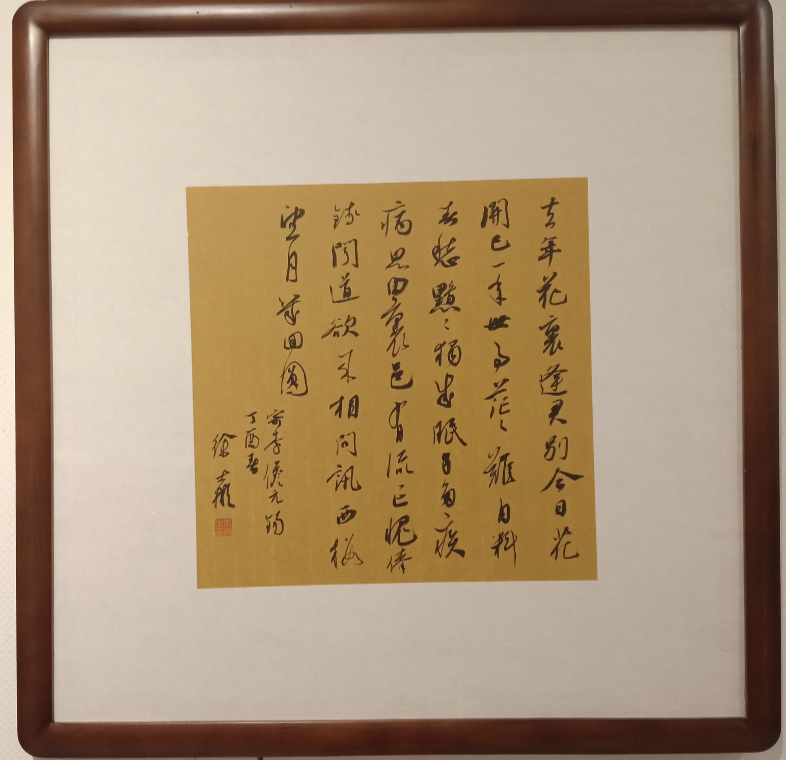 去年花裏逢君别今日花
開已一年世事茫〻難自料
春愁黯〻獨成眠身多疾
病思田裏邑有流亡愧俸
錢聞道欲来相問訊西楼
望月幾回圓
寄李儋元錫
丁酉春
徐